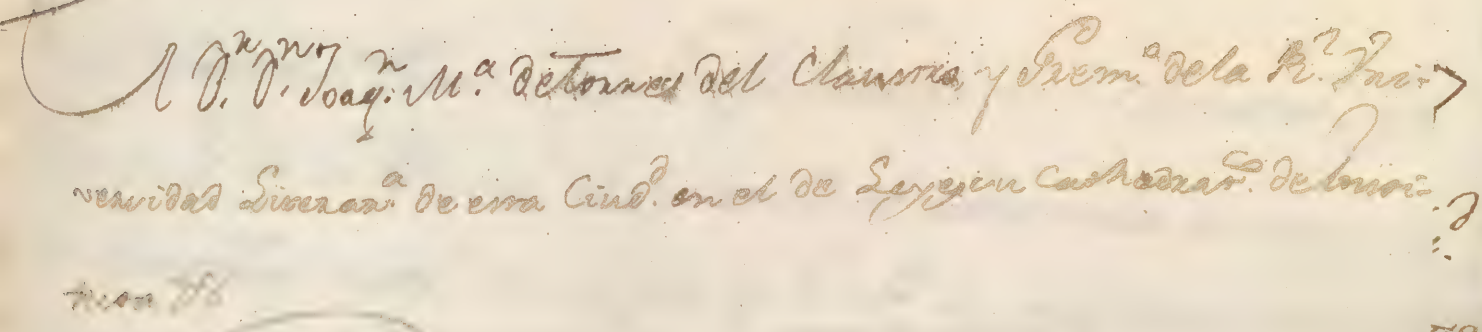 El D.n D.nor Joaq.n M.a de Torres del Claustro, y Grem.o de la R.l Uni-
versidad Literar.a de esta Ciud.d en el de Leyes su Cathedrat.co de Insti-